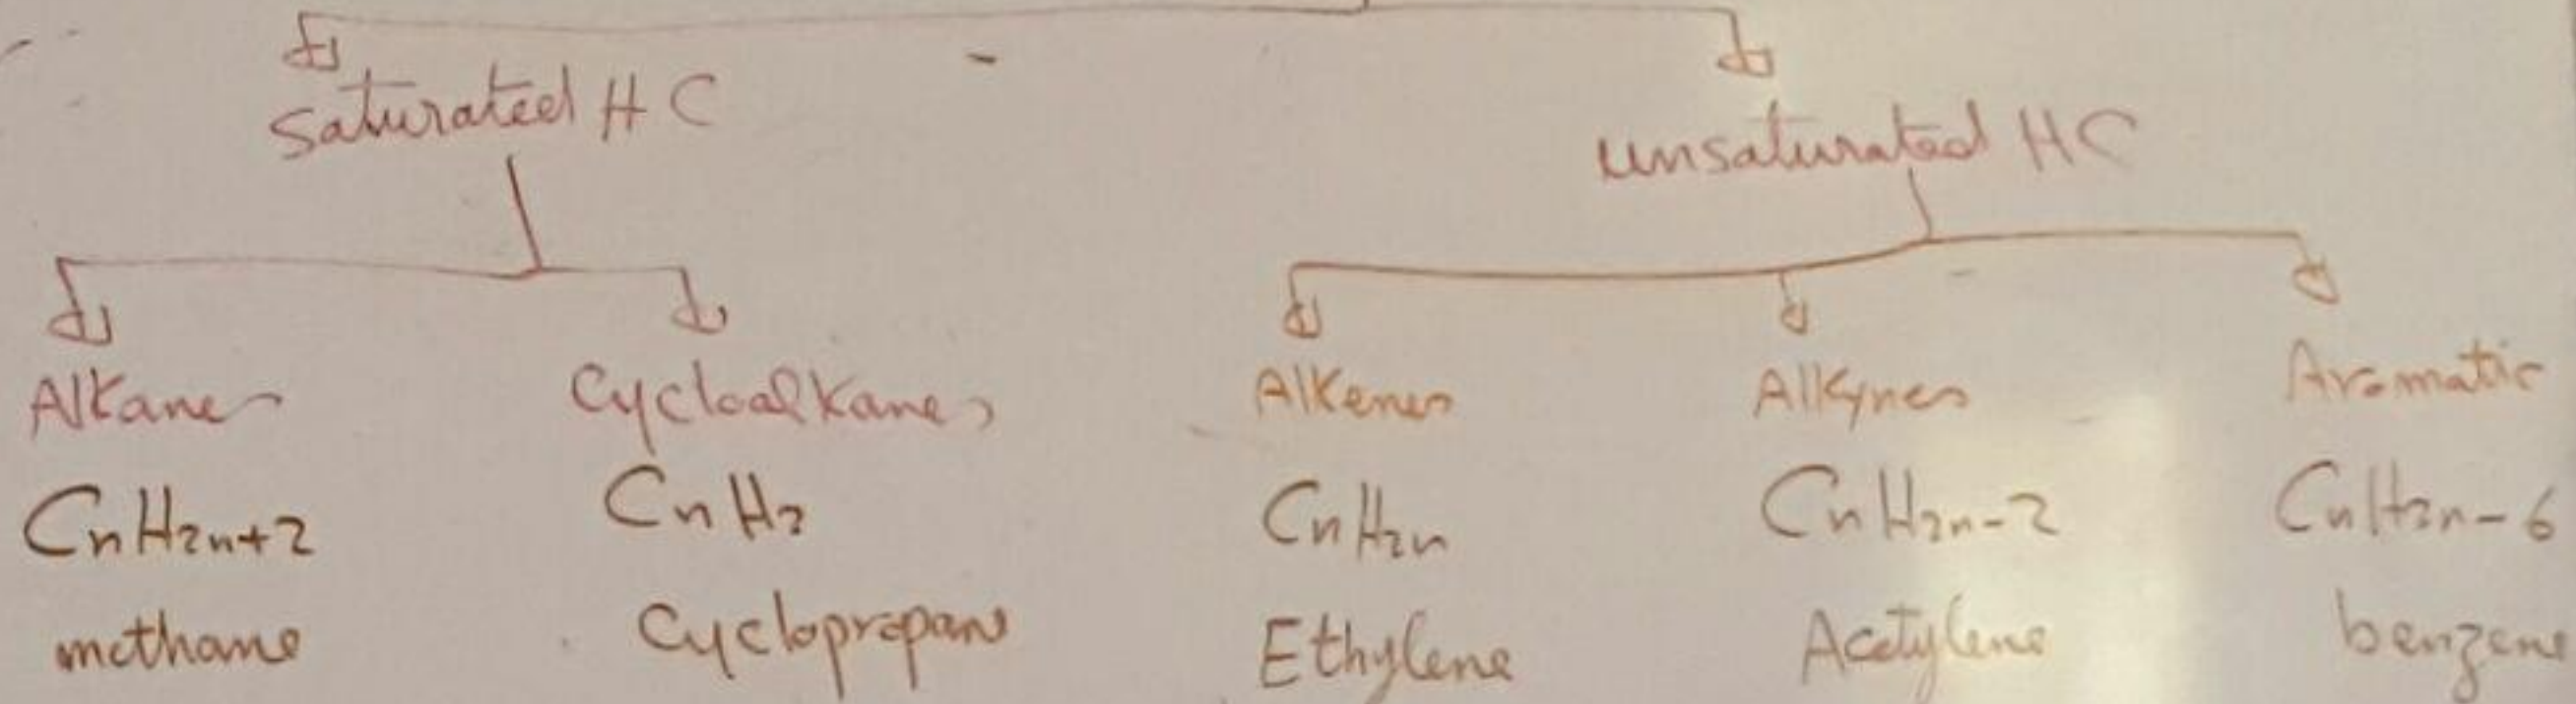 Saturated HC
unsaturated HC
Alkanes
Cycloalkanes
Alkenes
Alkynes
Aromatic
CnH2n+2
CnH2
CnH2n
CnH2n-2
CnH2n-6
methane
Cyclopropane
Ethylene
Acetylene
benzene